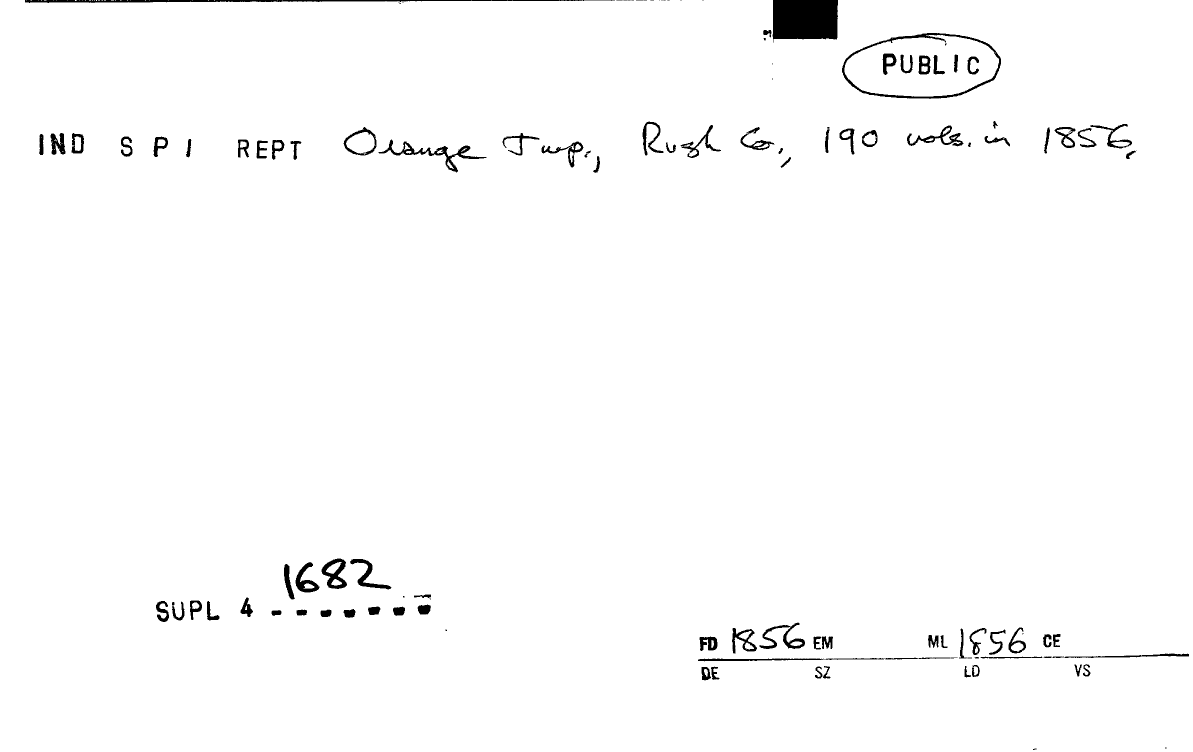 PUBLIC
IND S P I REPT Orange Twp., Rush Co., 190 vols. in 1856,
1682
SUPL 4 - - - - - - -
FD 1856 EM ML 1856 CE
DE SZ LD VS